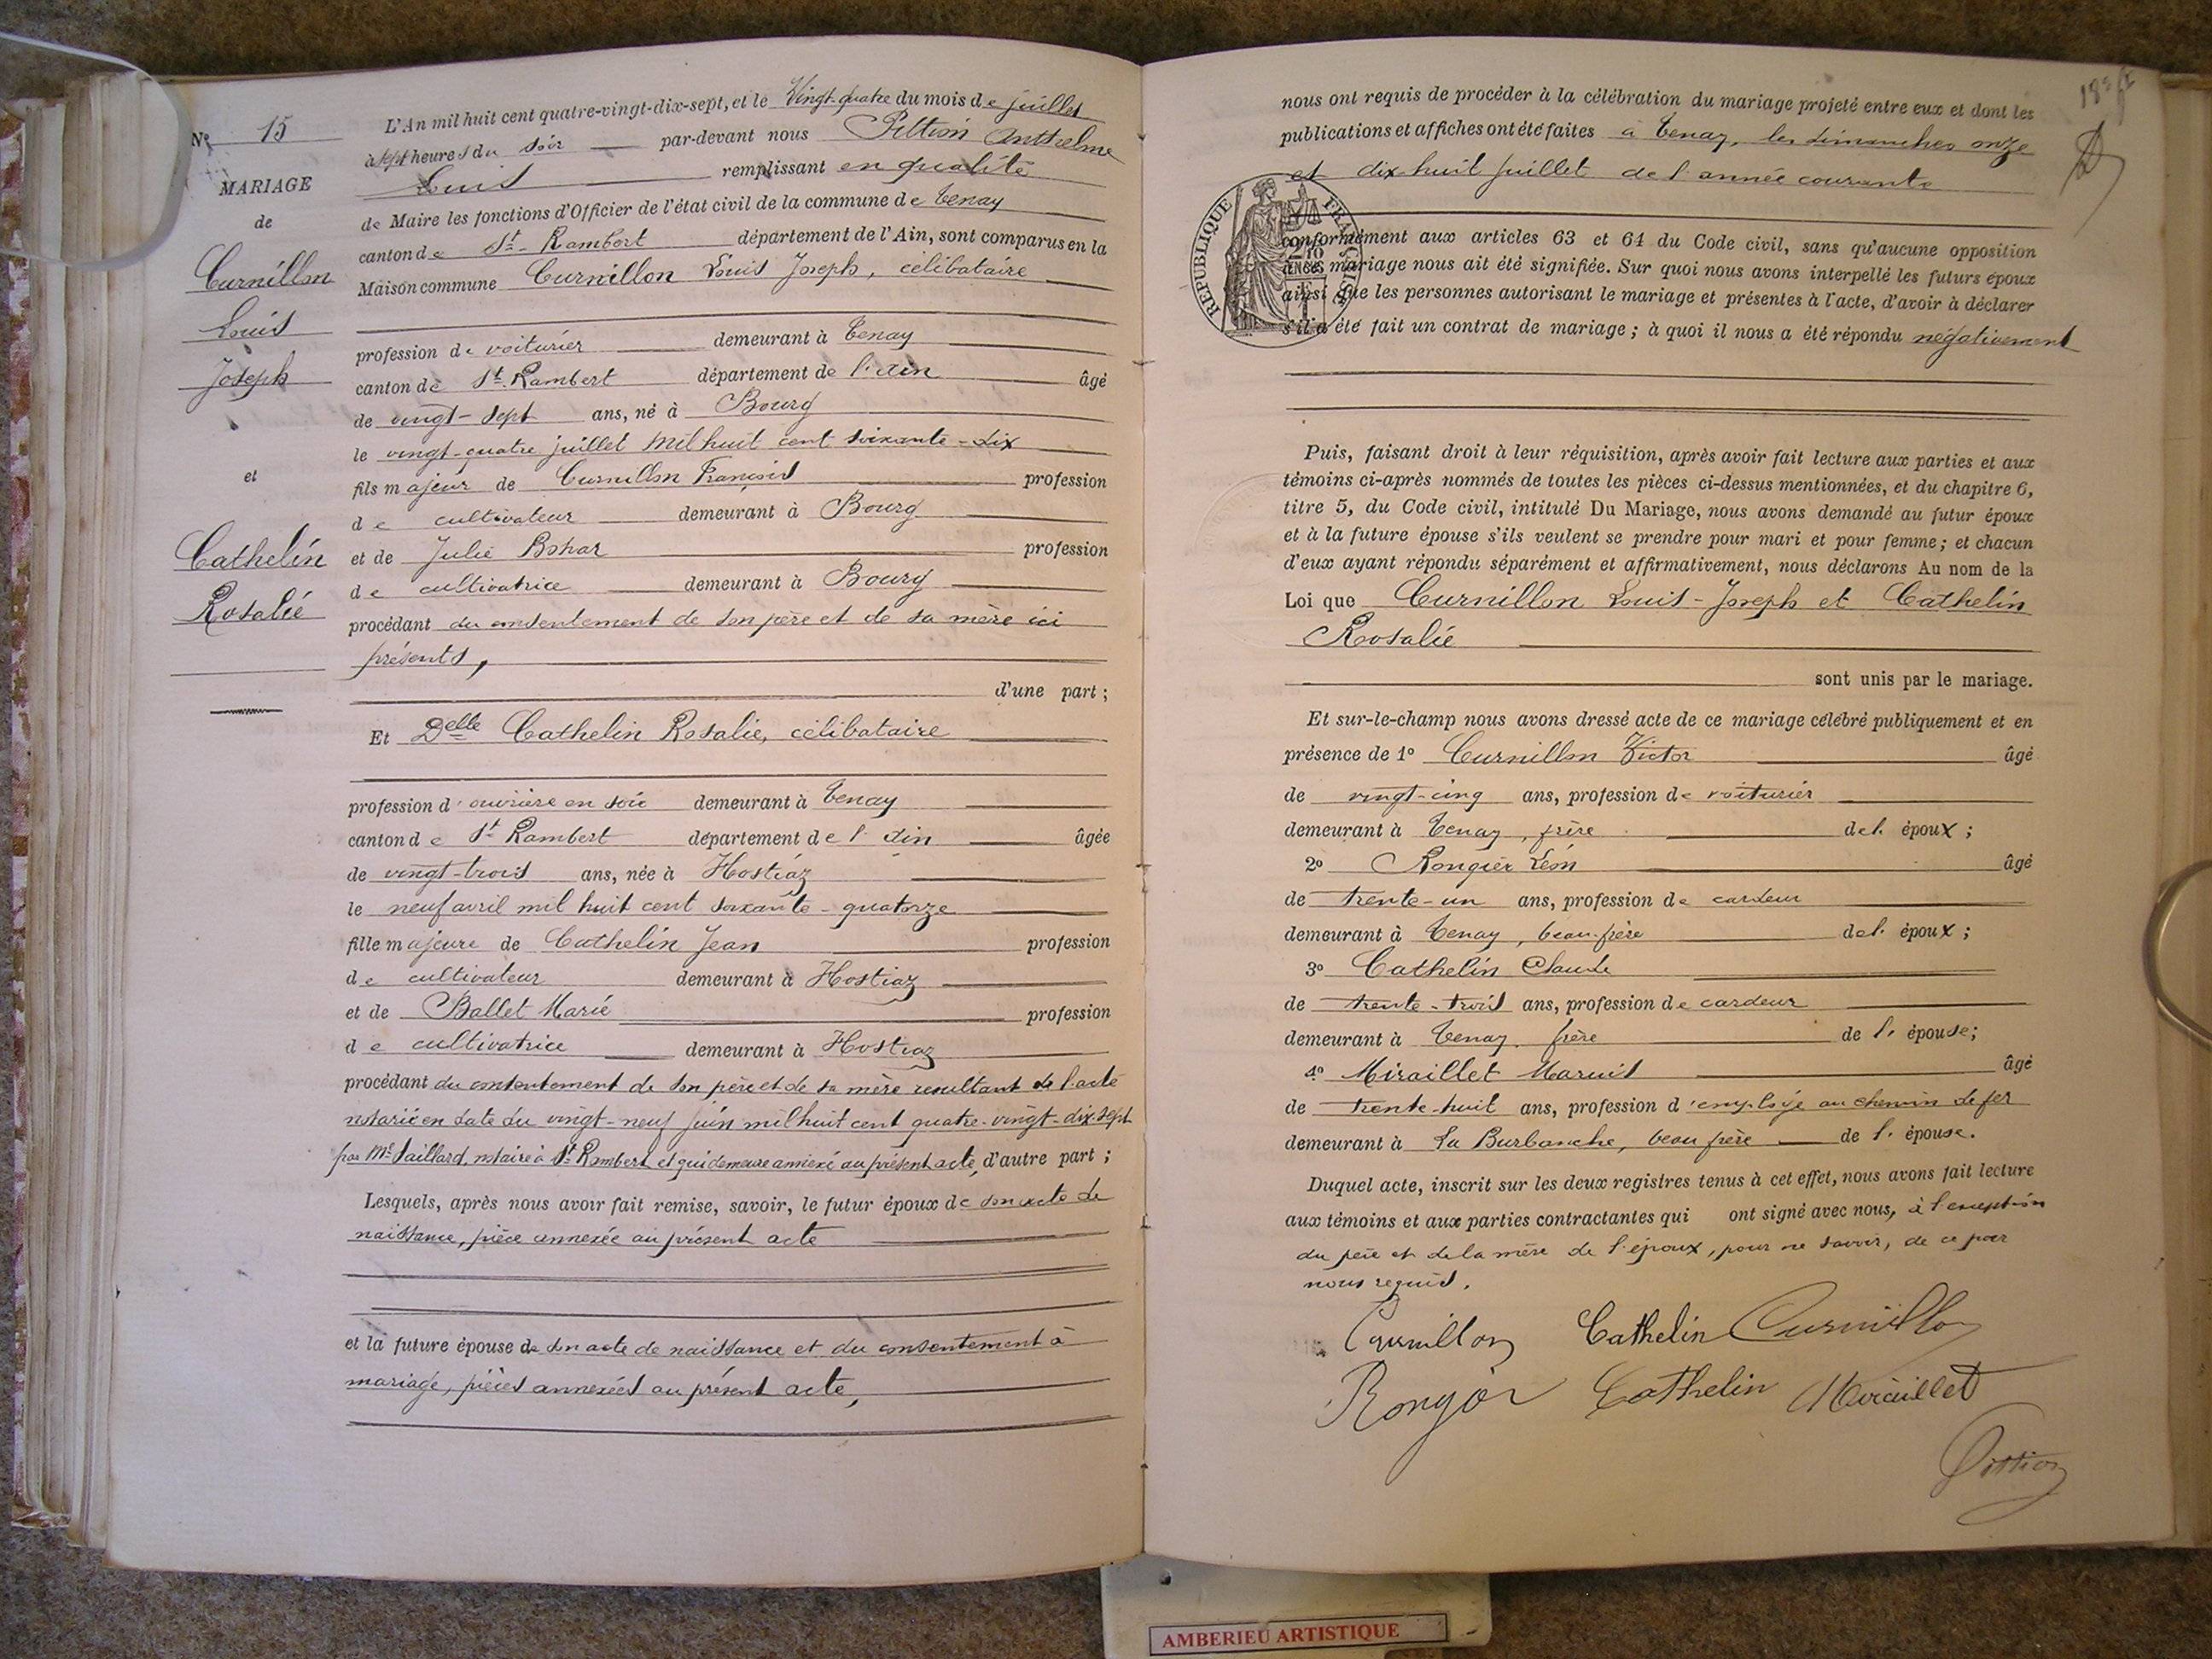 Nº 15
MARIAGE
de
Curnillon
Louis
Joseph
et
Cathelin
Rosalie
L'An mil huit cent quatre-vingt-dix-sept, et le Vingt-quatre du mois de juillet
à sept heures du soir par-devant nous Pittion Anthelme
Louis remplissant en qualité
de Maire les fonctions d'Officier de l'état civil de la commune de Tenay
canton de St-Rambert département de l'Ain, sont comparus en la
Maison commune Curnillon Louis Joseph, célibataire
profession de voiturier demeurant à Tenay
canton de St Rambert département de l'Ain âgé
de vingt-sept ans, né à Bourg
le vingt-quatre juillet mil huit cent soixante-dix
fils majeur de Curnillon François profession
de cultivateur demeurant à Bourg
et de Julie profession
de cultivatrice demeurant à Bourg
procédant du consentement de son père et de sa mère ici
présents,
d'une part ;
Et Delle Cathelin Rosalie, célibataire
profession d'ouvrière en soie demeurant à Tenay
canton de St Rambert département de l'Ain âgée
de vingt-trois ans, née à Hostiaz
le neuf avril mil huit cent soixante-quatorze
fille majeure de Cathelin Jean profession
de cultivateur demeurant à Hostiaz
et de Ballet Marie profession
de cultivatrice demeurant à Hostiaz
procédant du consentement de son père et de sa mère résultant de l'acte
notarié en date du vingt-neuf juin mil huit cent quatre-vingt-dix-sept
par Me Saillard, notaire à St Rambert et qui demeure annexé au présent acte, d'autre part ;
Lesquels, après nous avoir fait remise, savoir, le futur époux de son acte de
naissance, pièce annexée au présent acte
et la future épouse de son acte de naissance et du consentement à
mariage, pièces annexées au présent acte,
nous ont requis de procéder à la célébration du mariage projeté entre eux et dont les
publications et affiches ont été faites à Tenay, les dimanches onze
et dix-huit juillet de l'année courante
RÉPUBLIQUE FRANÇAISE
conformément aux articles 63 et 64 du Code civil, sans qu'aucune opposition
à ce mariage nous ait été signifiée. Sur quoi nous avons interpellé les futurs époux
ainsi que les personnes autorisant le mariage et présentes à l'acte, d'avoir à déclarer
s'il a été fait un contrat de mariage ; à quoi il nous a été répondu négativement
Puis, faisant droit à leur réquisition, après avoir fait lecture aux parties et aux
témoins ci-après nommés de toutes les pièces ci-dessus mentionnées, et du chapitre 6,
titre 5, du Code civil, intitulé Du Mariage, nous avons demandé au futur époux
et à la future épouse s'ils veulent se prendre pour mari et pour femme ; et chacun
d'eux ayant répondu séparément et affirmativement, nous déclarons Au nom de la
Loi que Curnillon Louis-Joseph et Cathelin
Rosalie
sont unis par le mariage.
Et sur-le-champ nous avons dressé acte de ce mariage célébré publiquement et en
présence de 1º Curnillon Victor âgé
de vingt-cinq ans, profession de voiturier
demeurant à Tenay, frère de l' époux ;
2º Rongier Léon âgé
de trente-un ans, profession de cardeur
demeurant à Tenay, beau-frère de l' époux ;
3º Cathelin Claude
de trente-trois ans, profession de cardeur
demeurant à Tenay, frère de l' épouse ;
4º Miraillet Marius âgé
de trente-huit ans, profession d'employé au chemin de fer
demeurant à La Burbanche, beau frère de l' épouse.
Duquel acte, inscrit sur les deux registres tenus à cet effet, nous avons fait lecture
aux témoins et aux parties contractantes qui ont signé avec nous, à l'exception
du père et de la mère de l'époux, pour ne savoir, de ce par
nous requis.
Curnillon Cathelin Curnillon
Rongier Cathelin Miraillet
Pittion
AMBERIEU ARTISTIQUE